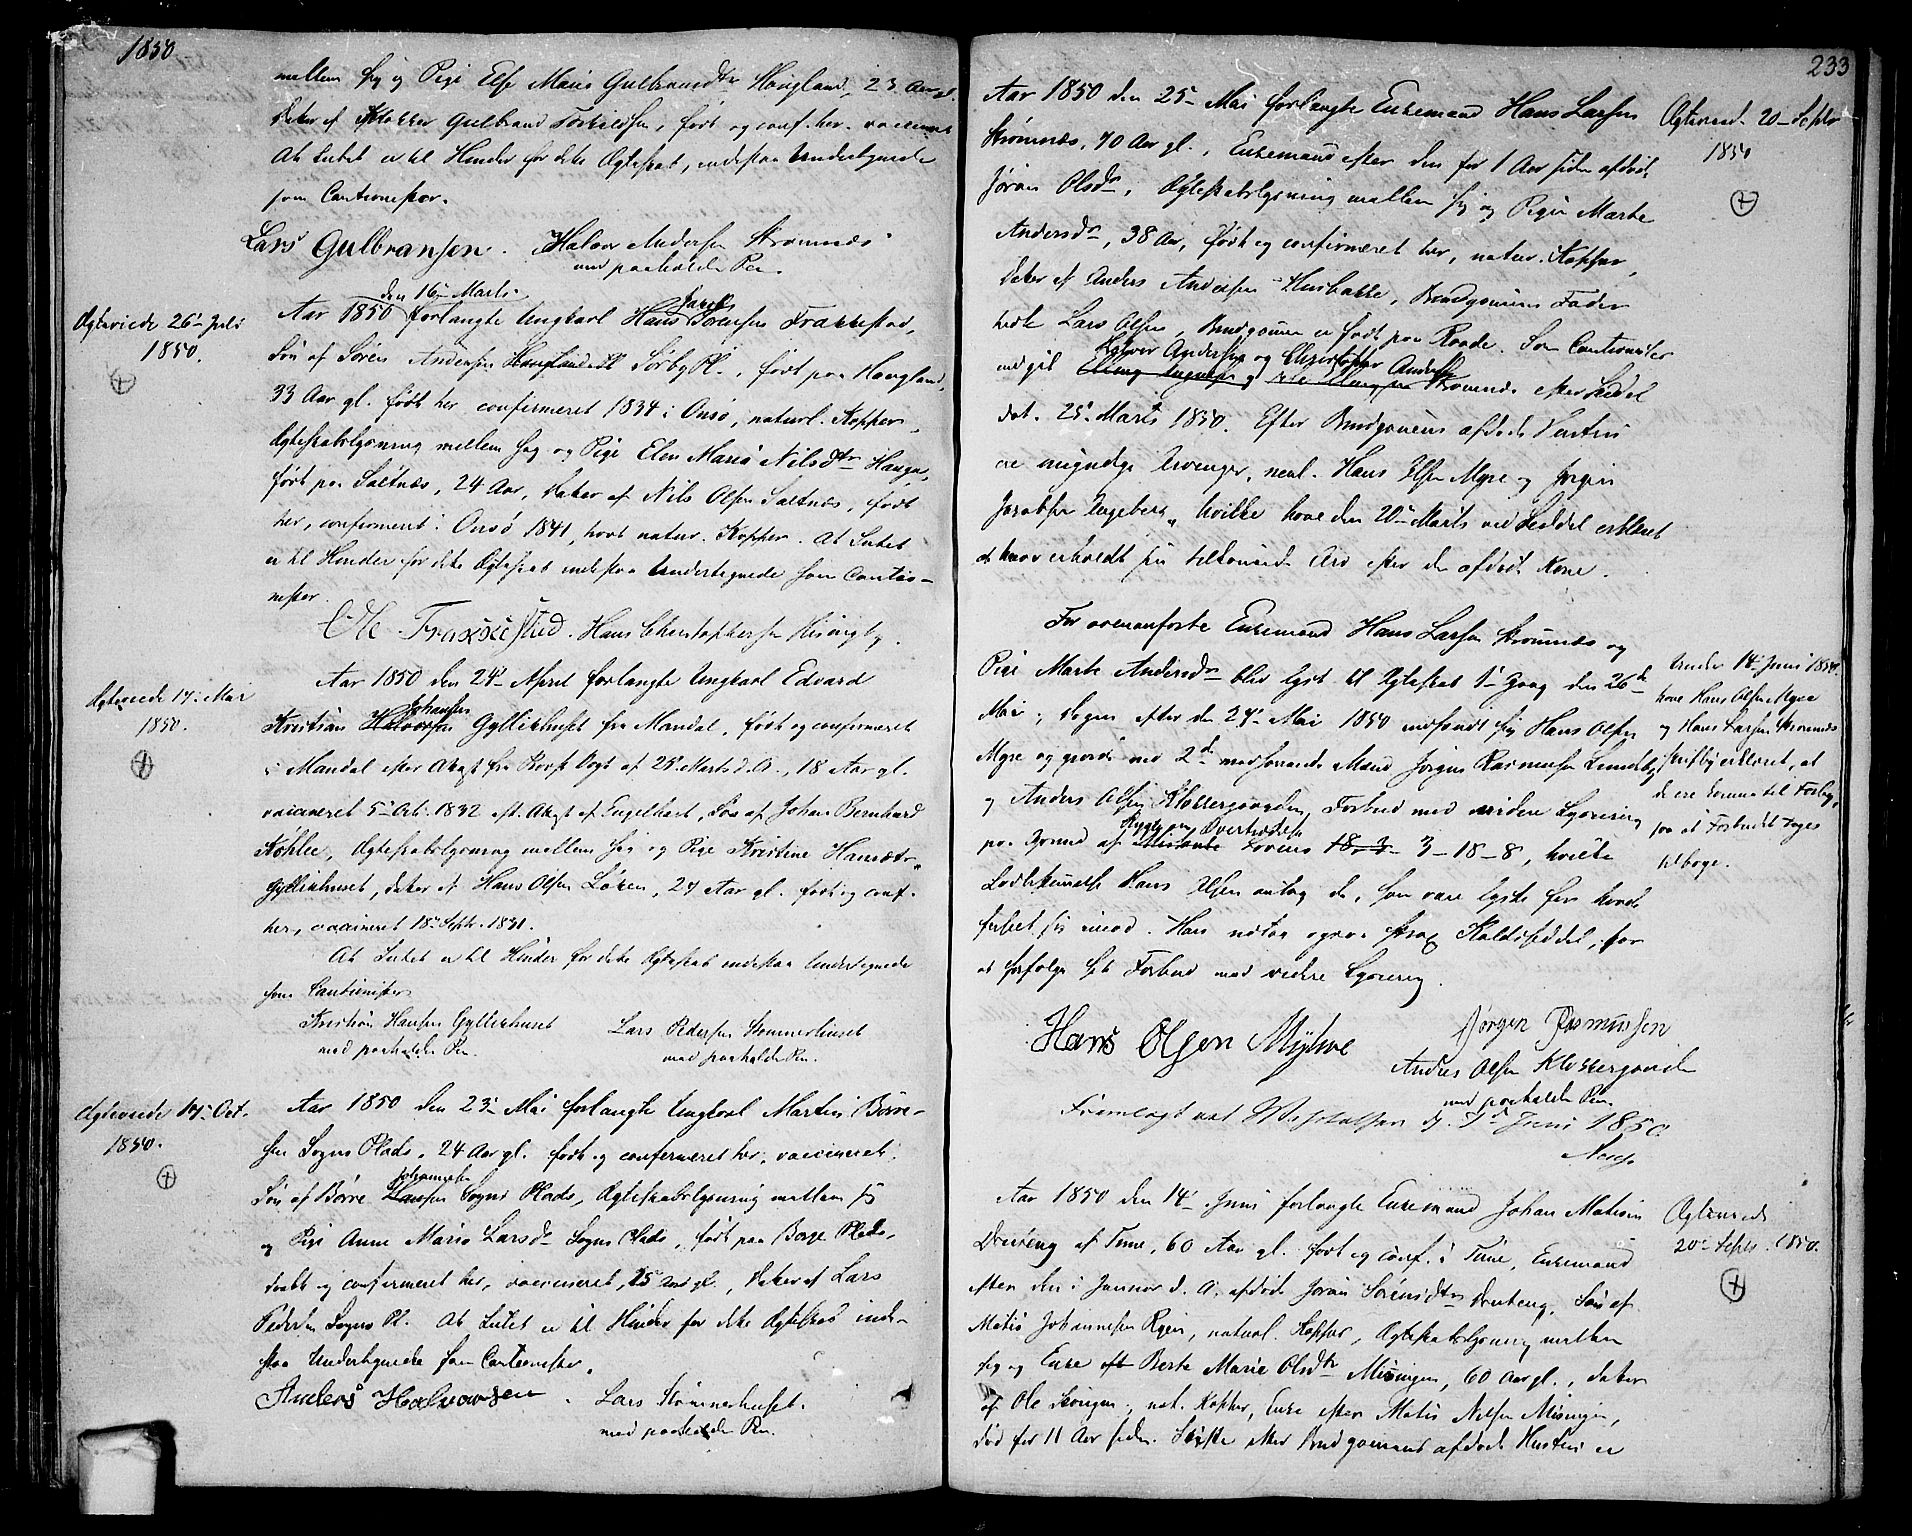 1850
mellem sig og Pige Else Marie Gulbrandsdtr Hougland, 23 Aar gl.
Datter af Klokker Gulbrand Torkildsen, født og conf. her. vaccineret
At Intet er til Hinder for dette Ægteskab, indestaa Undertegnede
som Cautionister.
Lars Gulbransen. Halvor Andersen Strømnæs
med paaholden Pen.
Ægteviede 26 Juli
1850.
den 16 Marts
Aar 1850 forlangte Ungkarl Hans Sørensen Frakkestad,
Søn af Sören Andersen Sörby Pl., født paa Hougland,
33 Aar gl. født her, confirmeret 1834 i Onsö, naturl. Kopper,
Ægteskabslysning mellem sig og Pige Elen Maria Nilsdtr Hauge,
født paa Saltnæs, 24 Aar, Datter af Nils Olsen Saltnæs, født
her, confirmeret i Onsö 1841, havt natur. Kopper. At Intet
er til Hinder for dette Ægteskab indestaa Undertegnede som Cautio-
nister.
Ole Frakkestad. Hans Christophersen
Ægteviede 17 Mai
1850.
Aar 1850 den 24 April forlangte Ungkarl Edvard
Johansen
Kristian Halvorsen Gyltehuset fra Mandal, født og confirmeret
i Mandal efter Attest fra Provst Vogt af 25 Marts d. A., 18 Aar gl.
vaccineret 5 Oct. 1832 eft. Attest af Engelhart, Søn af Johan Bernhard
Köhler, Ægteskabslysning mellem sig og Pige Kristine Hansdtr
Gyltehuset, datter af Hans Olsen Löken, 27 Aar gl. født og conf.
her, vaccineret 18 Septr. 1831.
At Intet er til Hinder for dette Ægteskab indestaa Undertegnede
som Cautionister
Kristian Hansen Gyltehuset Lars Pedersen Stömnerhuset
med paaholden Pen. med paaholden Pen.
Ægteviede 17 Oct.
1850.
Aar 1850 den 23 Mai forlangte Ungkarl Martin Börre-
sen Sogns Plads, 24 Aar gl. født og confirmeret her, vaccineret
Johannesen
Søn af Börre Hansen Sogns Plads, Ægteskabslysning mellem sig
og Pige Anne Maria Larsdtr Sogns Plads, født paa Borge Plads,
døbt og confirmeret her, vaccineret, 25 Aar gl., Datter af Lars
Pedersen Sogns Pl. At Intet er til Hinder for dette Ægteskab inde-
staa Undertegnede som Cautionister.
Anders Halvorsen. Lars Stömnerhuset.
med paaholden Pen.
233
Aar 1850 den 25 Mai forlangte Enkemand Hans Larsen
Strømnæs, 70 Aar gl., Enkemand efter den for 1 Aar siden afdøde
Jöran Olsdr, Ægteskabslysning mellem sig og Pige Marte
Andersdr, 38 Aar, født og confirmeret her, natur. Kopper,
Datter af Anders Andersen Husbakke, Brudgommens Fader
hedte Lars Olsen, Brudgommen er født paa Raade. Som Cautionister
Halvor Andersen og Christopher Anders.
indgik Strømnæs efter Seddel
dat. 25 Marts 1850. Efter Brudgommens afdøde Hustru
ere myndige Arvinger, neml. Hans Olsen Myre og Jørgen
Jacobsen Engeberg, hvilke have den 20 Marts ved Seddel erklæret
at have erholdt sin tilkommende Arv efter den afdøde Kone.
Ægteviede 20 Septr
1850
For ovenanførte Enkemand Hans Larsen Strømnæs og
Pige Marte Andersdr blev lyst til Ægteskab 1 Gang den 26de
Mai; Dagen efter den 27 Mai 1850 indfandt sig Hans Olsen
Myre og gjorde med 2de medførende Mænd Jørgen Rasmussen Lundeby
og Anders Olsen Klokkergaarden, Forbud mod videre Lysning
paa Grund af Overtrædelse Lovens 3-18-8, hvilke
Hans Olsen antog de, som vare lyste for havde
forbrudt sig imod. Han udtog ogsaa strax Kaldsseddel, for
at forfølge sit Forbud mod videre Lysning.
Under 14 Juni 1850
have Hans Olsen Myre
og Hans Larsen Strømnæs
skriftlig erklæret, at
de ere komne til Forlig,
saa at Forbudet tages
tilbage.
Hans Olsen Myhre Jörgen Rasmussen
Andres Olsen Klokkergaarden
med paaholden Pen.
Fremlagt ved d. 1 Juni 1850
Aar 1850 den 14 Juni forlangte Enkemand Johan Matisen
Dreteng af Tune, 60 Aar gl. født og conf. i Tune, Enkemand
efter den i Januar d. A. afdøde Joran Sörensdtr Dreteng, Søn af
Matis Johannesen Rygin, natural. Kopper, Ægteskabslysning mellem
sig og Enke Berte Marie Olsdtr Misingen, 60 Aar gl., datter
af Ole Skringen, nat. Kopper, Enke efter Matis Nilsen Misingen,
død for 11 Aar siden. Skifte efter Brudgommens afdøde Hustru er
Ægteviede
20 Septr. 1850.